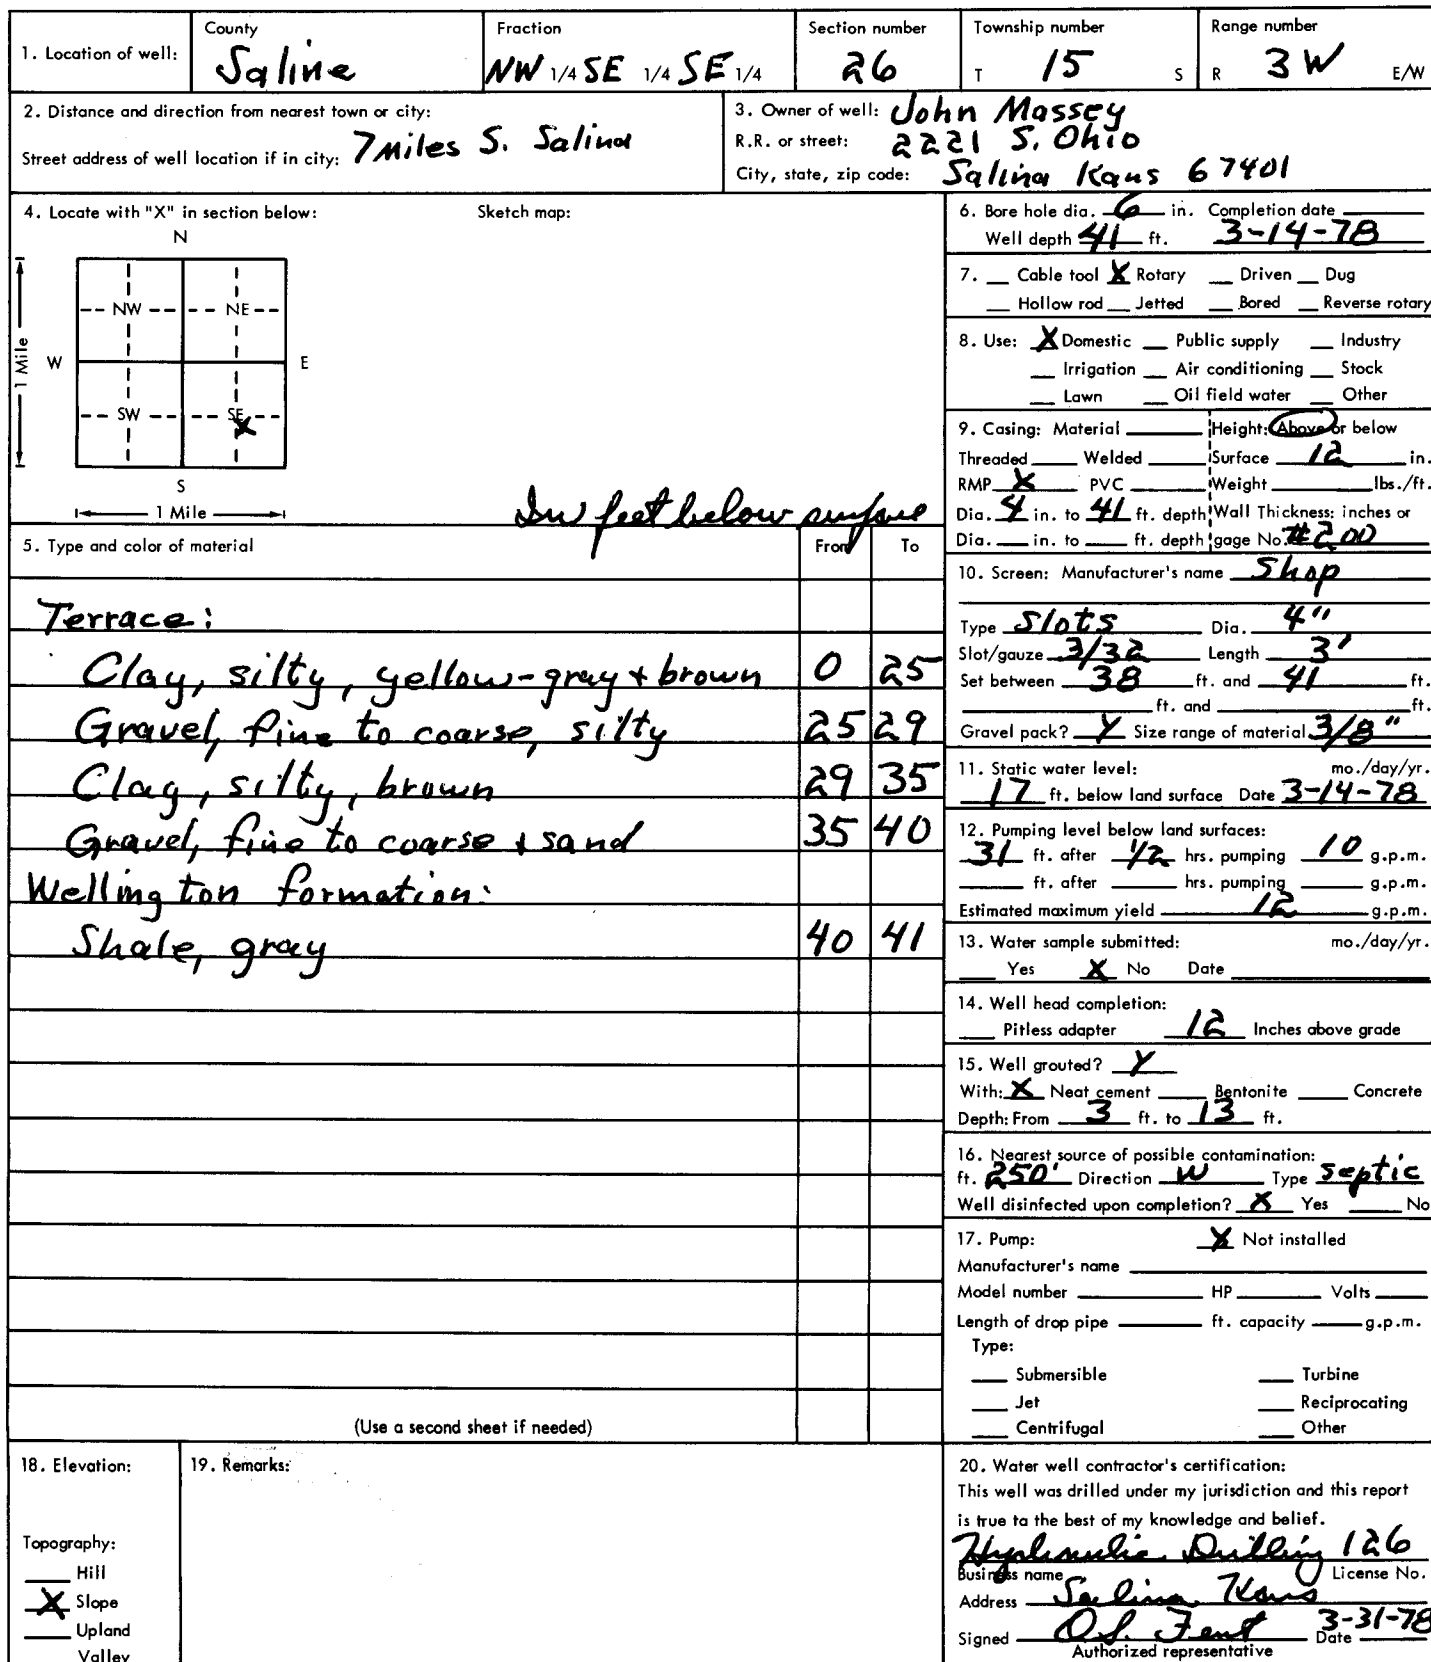 1. Location of well: County Saline Fraction NW 1/4 SE 1/4 SE 1/4 Section number 26 Township number T 15 S Range number R 3 W E/W
2. Distance and direction from nearest town or city:
Street address of well location if in city: 7 Miles S. Salina
3. Owner of well: John Massey
R.R. or street: 2221 S. Ohio
City, state, zip code: Salina Kans 67401
4. Locate with "X" in section below: Sketch map:
N
NW NE
W E
1 Mile
SW SE X
S
1 Mile
In feet below surface
5. Type and color of material From To
Terrace:
Clay, silty, yellow-gray + brown 0 25
Gravel, fine to coarse, silty 25 29
Clay, silty, brown 29 35
Gravel, fine to coarse + sand 35 40
Wellington formation:
Shale, gray 40 41
(Use a second sheet if needed)
6. Bore hole dia. 6 in. Completion date
Well depth 41 ft. 3-14-78
7. Cable tool X Rotary Driven Dug
Hollow rod Jetted Bored Reverse rotary
8. Use: X Domestic Public supply Industry
Irrigation Air conditioning Stock
Lawn Oil field water Other
9. Casing: Material Height: Above or below
Threaded Welded Surface 12 in.
RMP X PVC Weight lbs./ft.
Dia. 4 in. to 41 ft. depth Wall Thickness: inches or
Dia. in. to ft. depth gage No. #200
10. Screen: Manufacturer's name Shop
Type Slots Dia. 4"
Slot/gauze 3/32 Length 3'
Set between 38 ft. and 41 ft.
ft. and ft.
Gravel pack? Y Size range of material 3/8"
11. Static water level: mo./day/yr.
17 ft. below land surface Date 3-14-78
12. Pumping level below land surfaces:
31 ft. after 1/2 hrs. pumping 10 g.p.m.
ft. after hrs. pumping g.p.m.
Estimated maximum yield 12 g.p.m.
13. Water sample submitted: mo./day/yr.
Yes X No Date
14. Well head completion:
Pitless adapter 12 Inches above grade
15. Well grouted? Y
With: X Neat cement Bentonite Concrete
Depth: From 3 ft. to 13 ft.
16. Nearest source of possible contamination:
ft. 250' Direction W Type septic
Well disinfected upon completion? X Yes No
17. Pump: X Not installed
Manufacturer's name
Model number HP Volts
Length of drop pipe ft. capacity g.p.m.
Type:
Submersible Turbine
Jet Reciprocating
Centrifugal Other
18. Elevation:
Topography:
Hill
X Slope
Upland
Valley
19. Remarks:
20. Water well contractor's certification:
This well was drilled under my jurisdiction and this report
is true to the best of my knowledge and belief.
Hydraulic Drilling 126
Business name License No.
Address Salina Kans
Signed O.S. Fent Date 3-31-78
Authorized representative